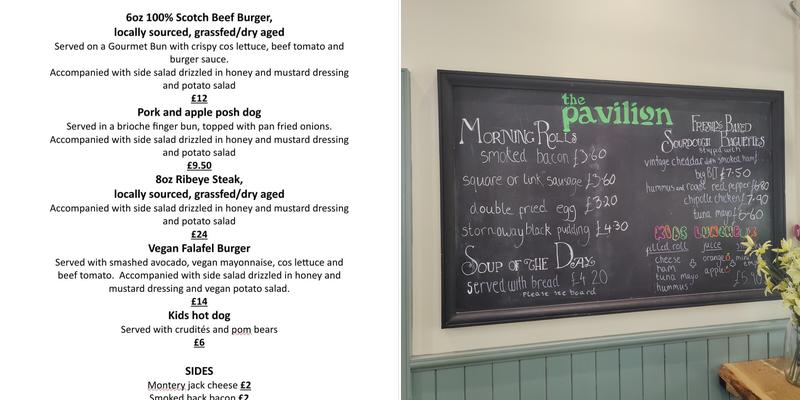 6oz 100% Scotch Beef Burger,
locally sourced, grassfed/dry aged
Served on a Gourmet Bun with crispy cos lettuce, beef tomato and
burger sauce.
Accompanied with side salad drizzled in honey and mustard dressing
and potato salad
£12
Pork and apple posh dog
Served in a brioche finger bun, topped with pan fried onions.
Accompanied with side salad drizzled in honey and mustard dressing
and potato salad
£9.50
8oz Ribeye Steak,
locally sourced, grassfed/dry aged
Accompanied with side salad drizzled in honey and mustard dressing
and potato salad
£24
Vegan Falafel Burger
Served with smashed avocado, vegan mayonnaise, cos lettuce and
beef tomato. Accompanied with side salad drizzled in honey and
mustard dressing and vegan potato salad.
£14
Kids hot dog
Served with crudités and pom bears
£6
SIDES
Montery jack cheese £2
Smoked back bacon £2
the
pavilion
Morning Rolls
smoked bacon £3.60
square or link sausage £3.60
double fried egg £3.20
stornoway black pudding £4.30
Soup of the Day
served with bread £4.20
Please see board
Freshly Baked
Sourdough Baguettes
stuffed with
vintage cheddar with smoked ham
big BLT £7.50
hummus and roast red pepper £6.80
chipotle chicken £7.90
tuna mayo £6.60
Kids Lunch
filled roll juice
cheese orange
ham apple
tuna mayo
hummus